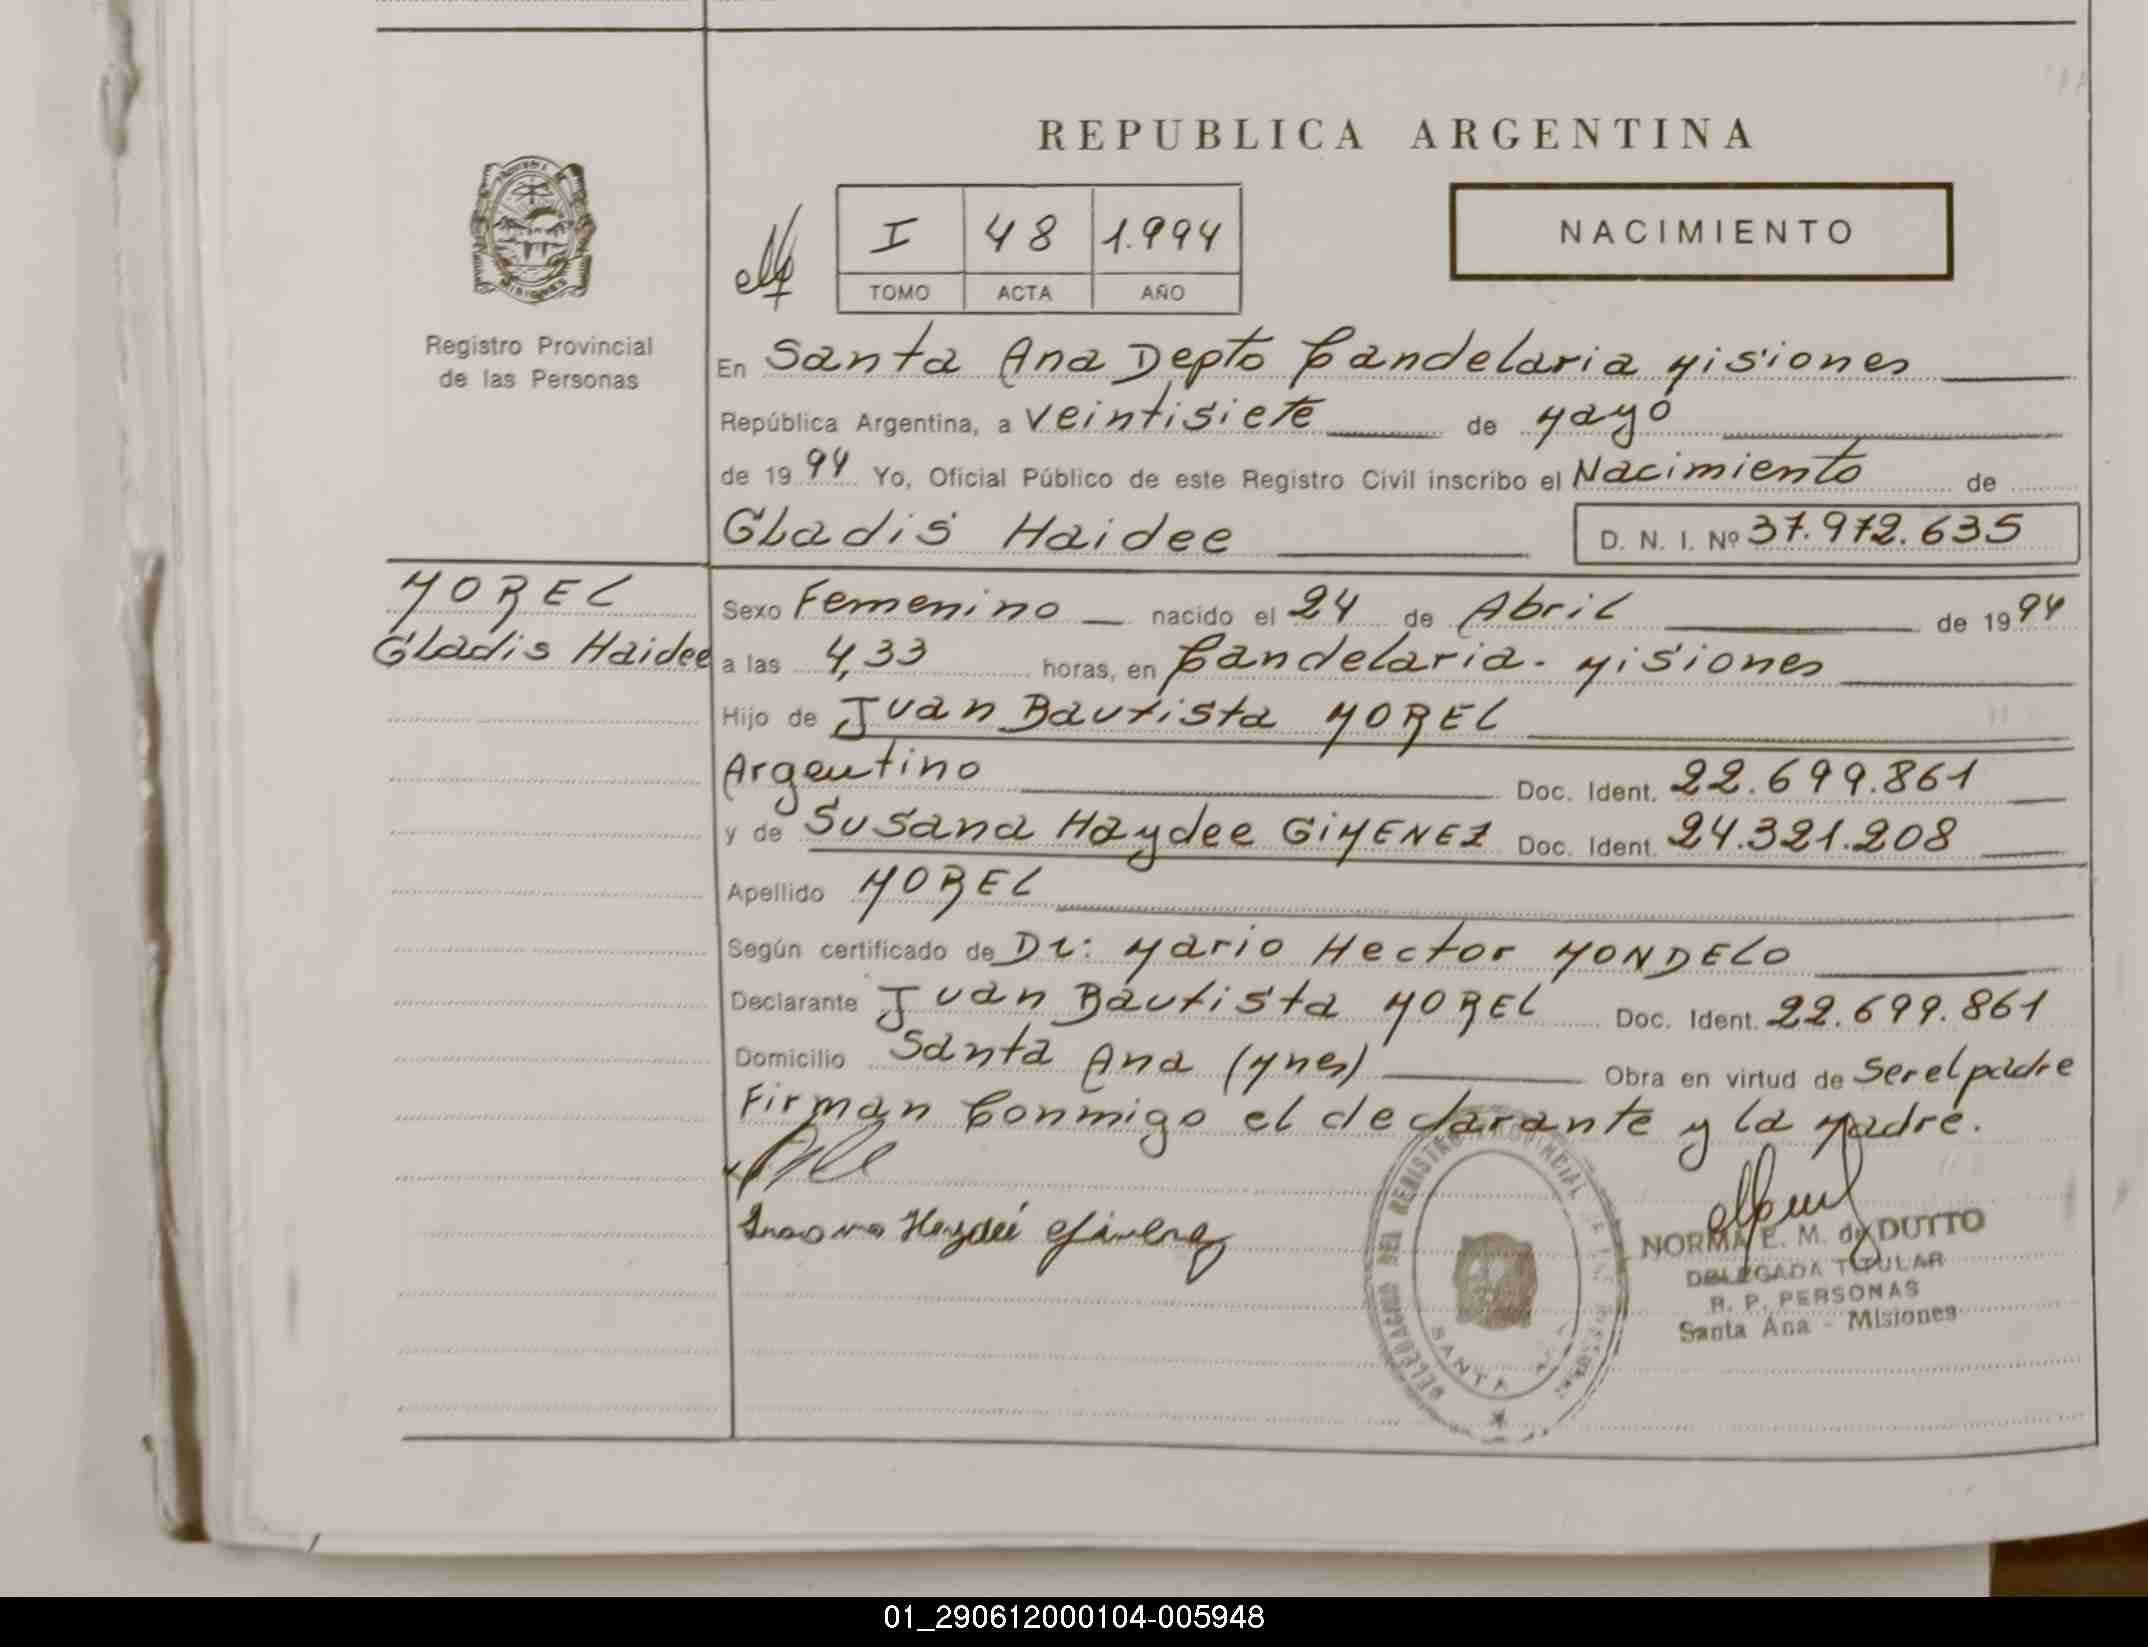 REPUBLICA ARGENTINA
I 48 1.994
TOMO ACTA AÑO
NACIMIENTO
Registro Provincial
de las Personas
En Santa Ana Depto Candelaria Misiones
República Argentina, a Veintisiete de Mayo
de 1994 Yo, Oficial Público de este Registro Civil inscribo el Nacimiento de
Gladis Haidee D. N. I. Nº 37.972.635
MOREL
Gladis Haidee
Sexo Femenino nacido el 24 de Abril de 1994
a las 4,33 horas, en Candelaria. Misiones
Hijo de Juan Bautista MOREL
Argentino Doc. Ident. 22.699.861
y de Susana Haydee GIMENEZ Doc. Ident. 24.321.208
Apellido MOREL
Según certificado de Dr: Mario Hector MONDELO
Declarante Juan Bautista MOREL Doc. Ident. 22.699.861
Domicilio Santa Ana (Mnes) Obra en virtud de ser el padre
Firman Conmigo el declarante y la Madre.
Susana Haydeé Gimenez
DELEGACION DEL REGISTRO PROVINCIAL DE LAS PERSONAS
SANTA
NORMA E. M. de DUTTO
DELEGADA TITULAR
R. P. PERSONAS
Santa Ana - Misiones
01_290612000104-005948